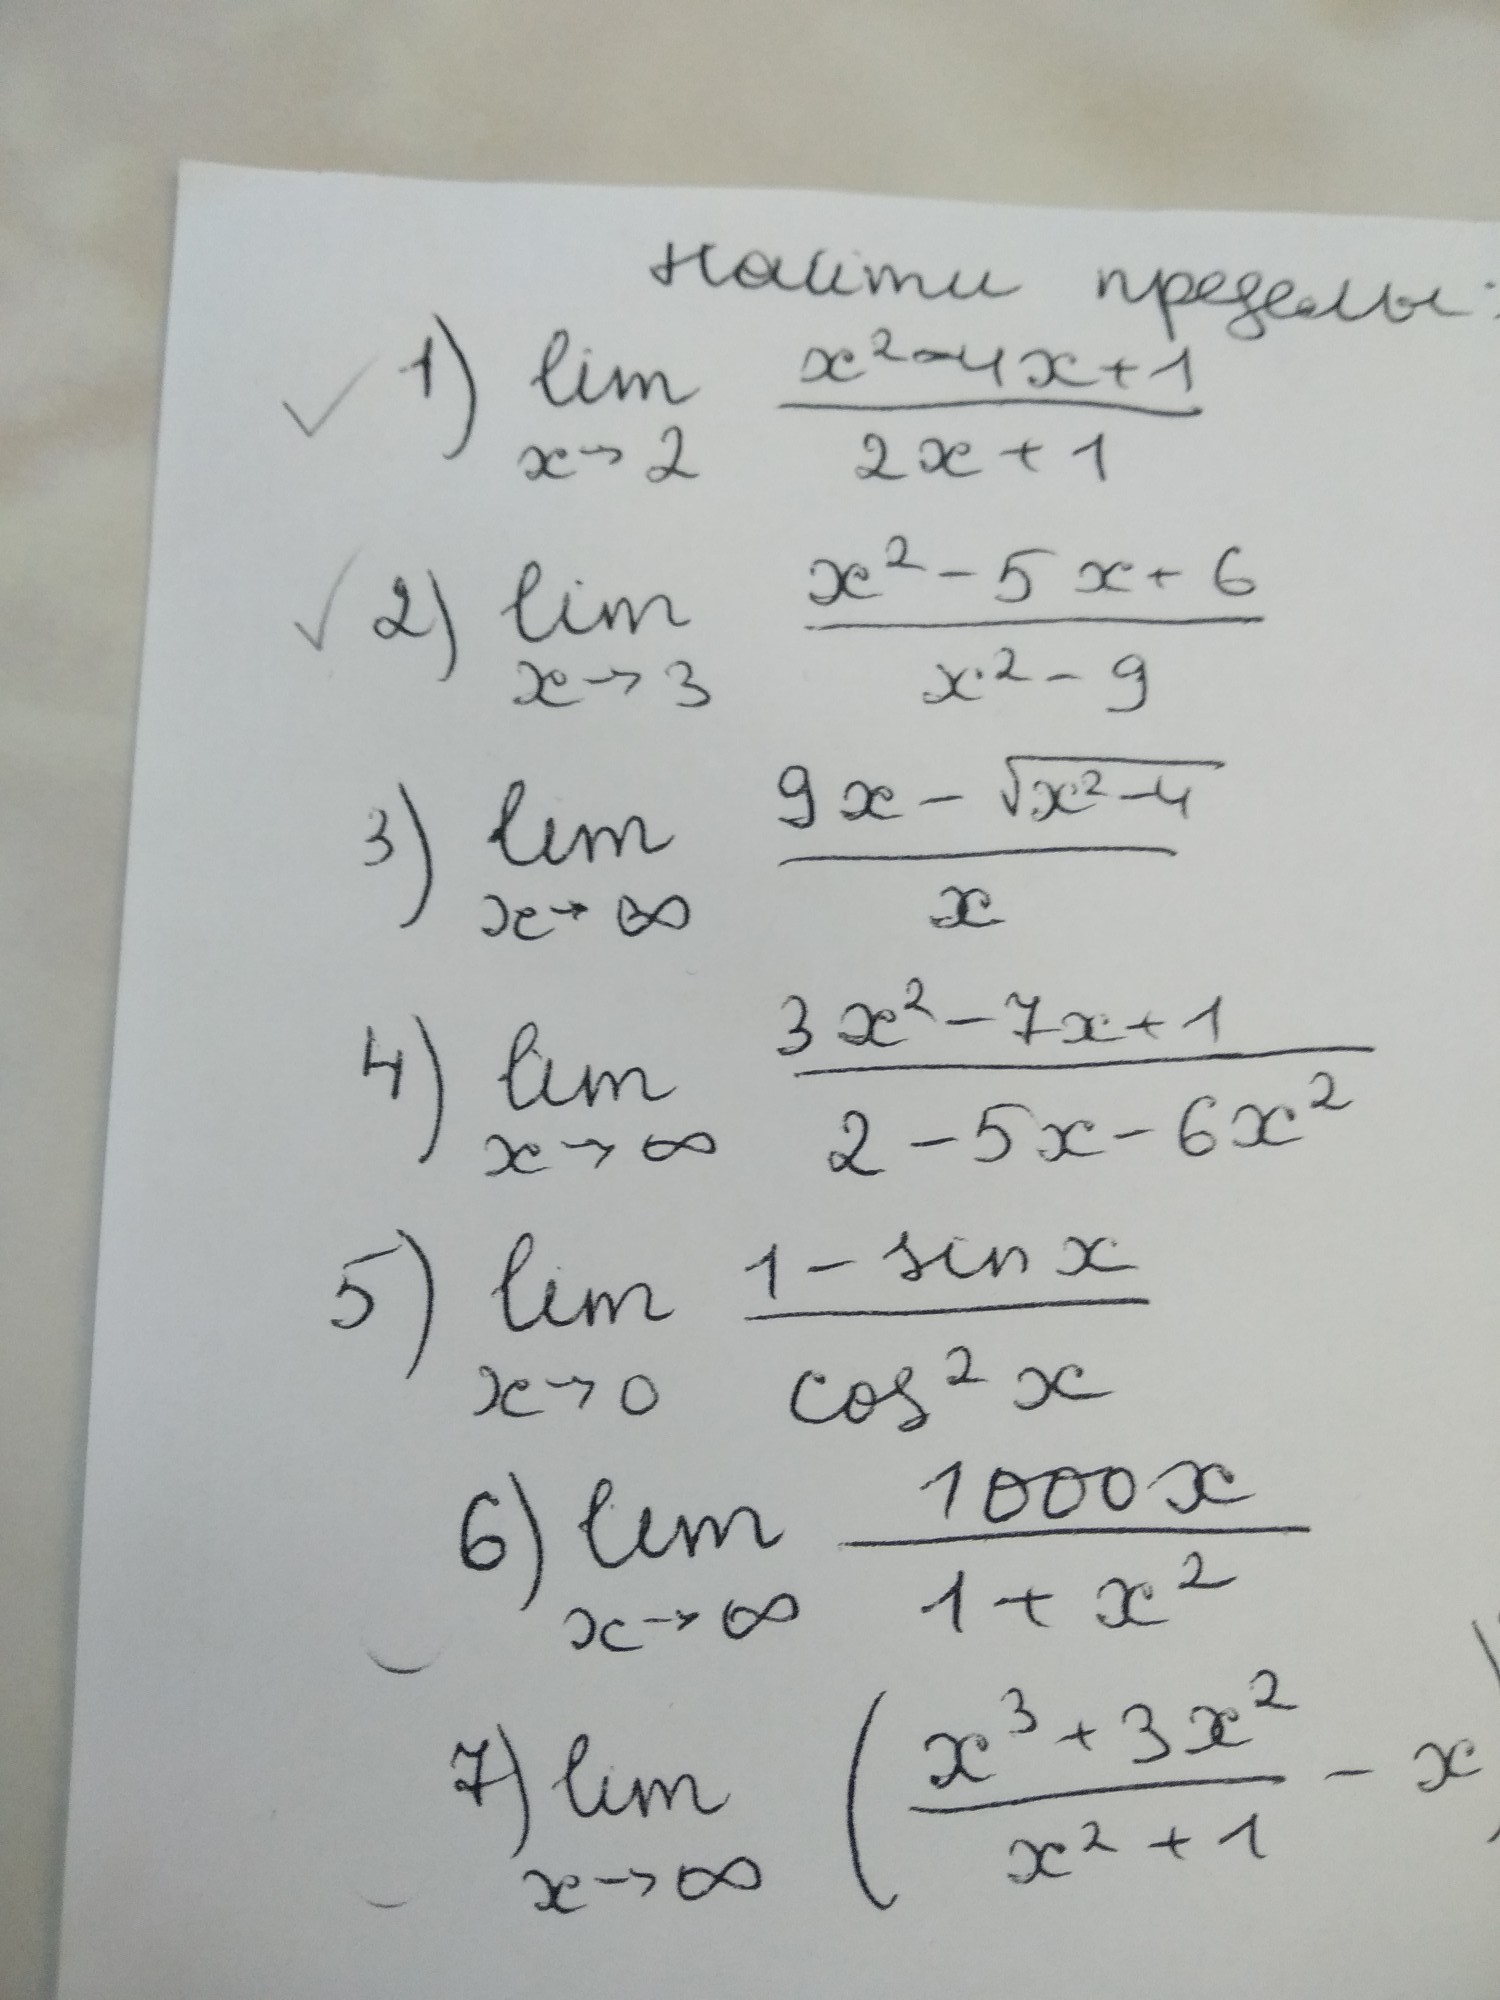 Найти пределы:
1) lim x→2 (x² - 4x + 1)/(2x + 1)
2) lim x→3 (x² - 5x + 6)/(x² - 9)
3) lim x→∞ (9x - √(x² - 4))/x
4) lim x→∞ (3x² - 7x + 1)/(2 - 5x - 6x²)
5) lim x→0 (1 - sin x)/(cos² x)
6) lim x→∞ (1000x)/(1 + x²)
7) lim x→∞ ((x³ + 3x²)/(x² + 1) - x)